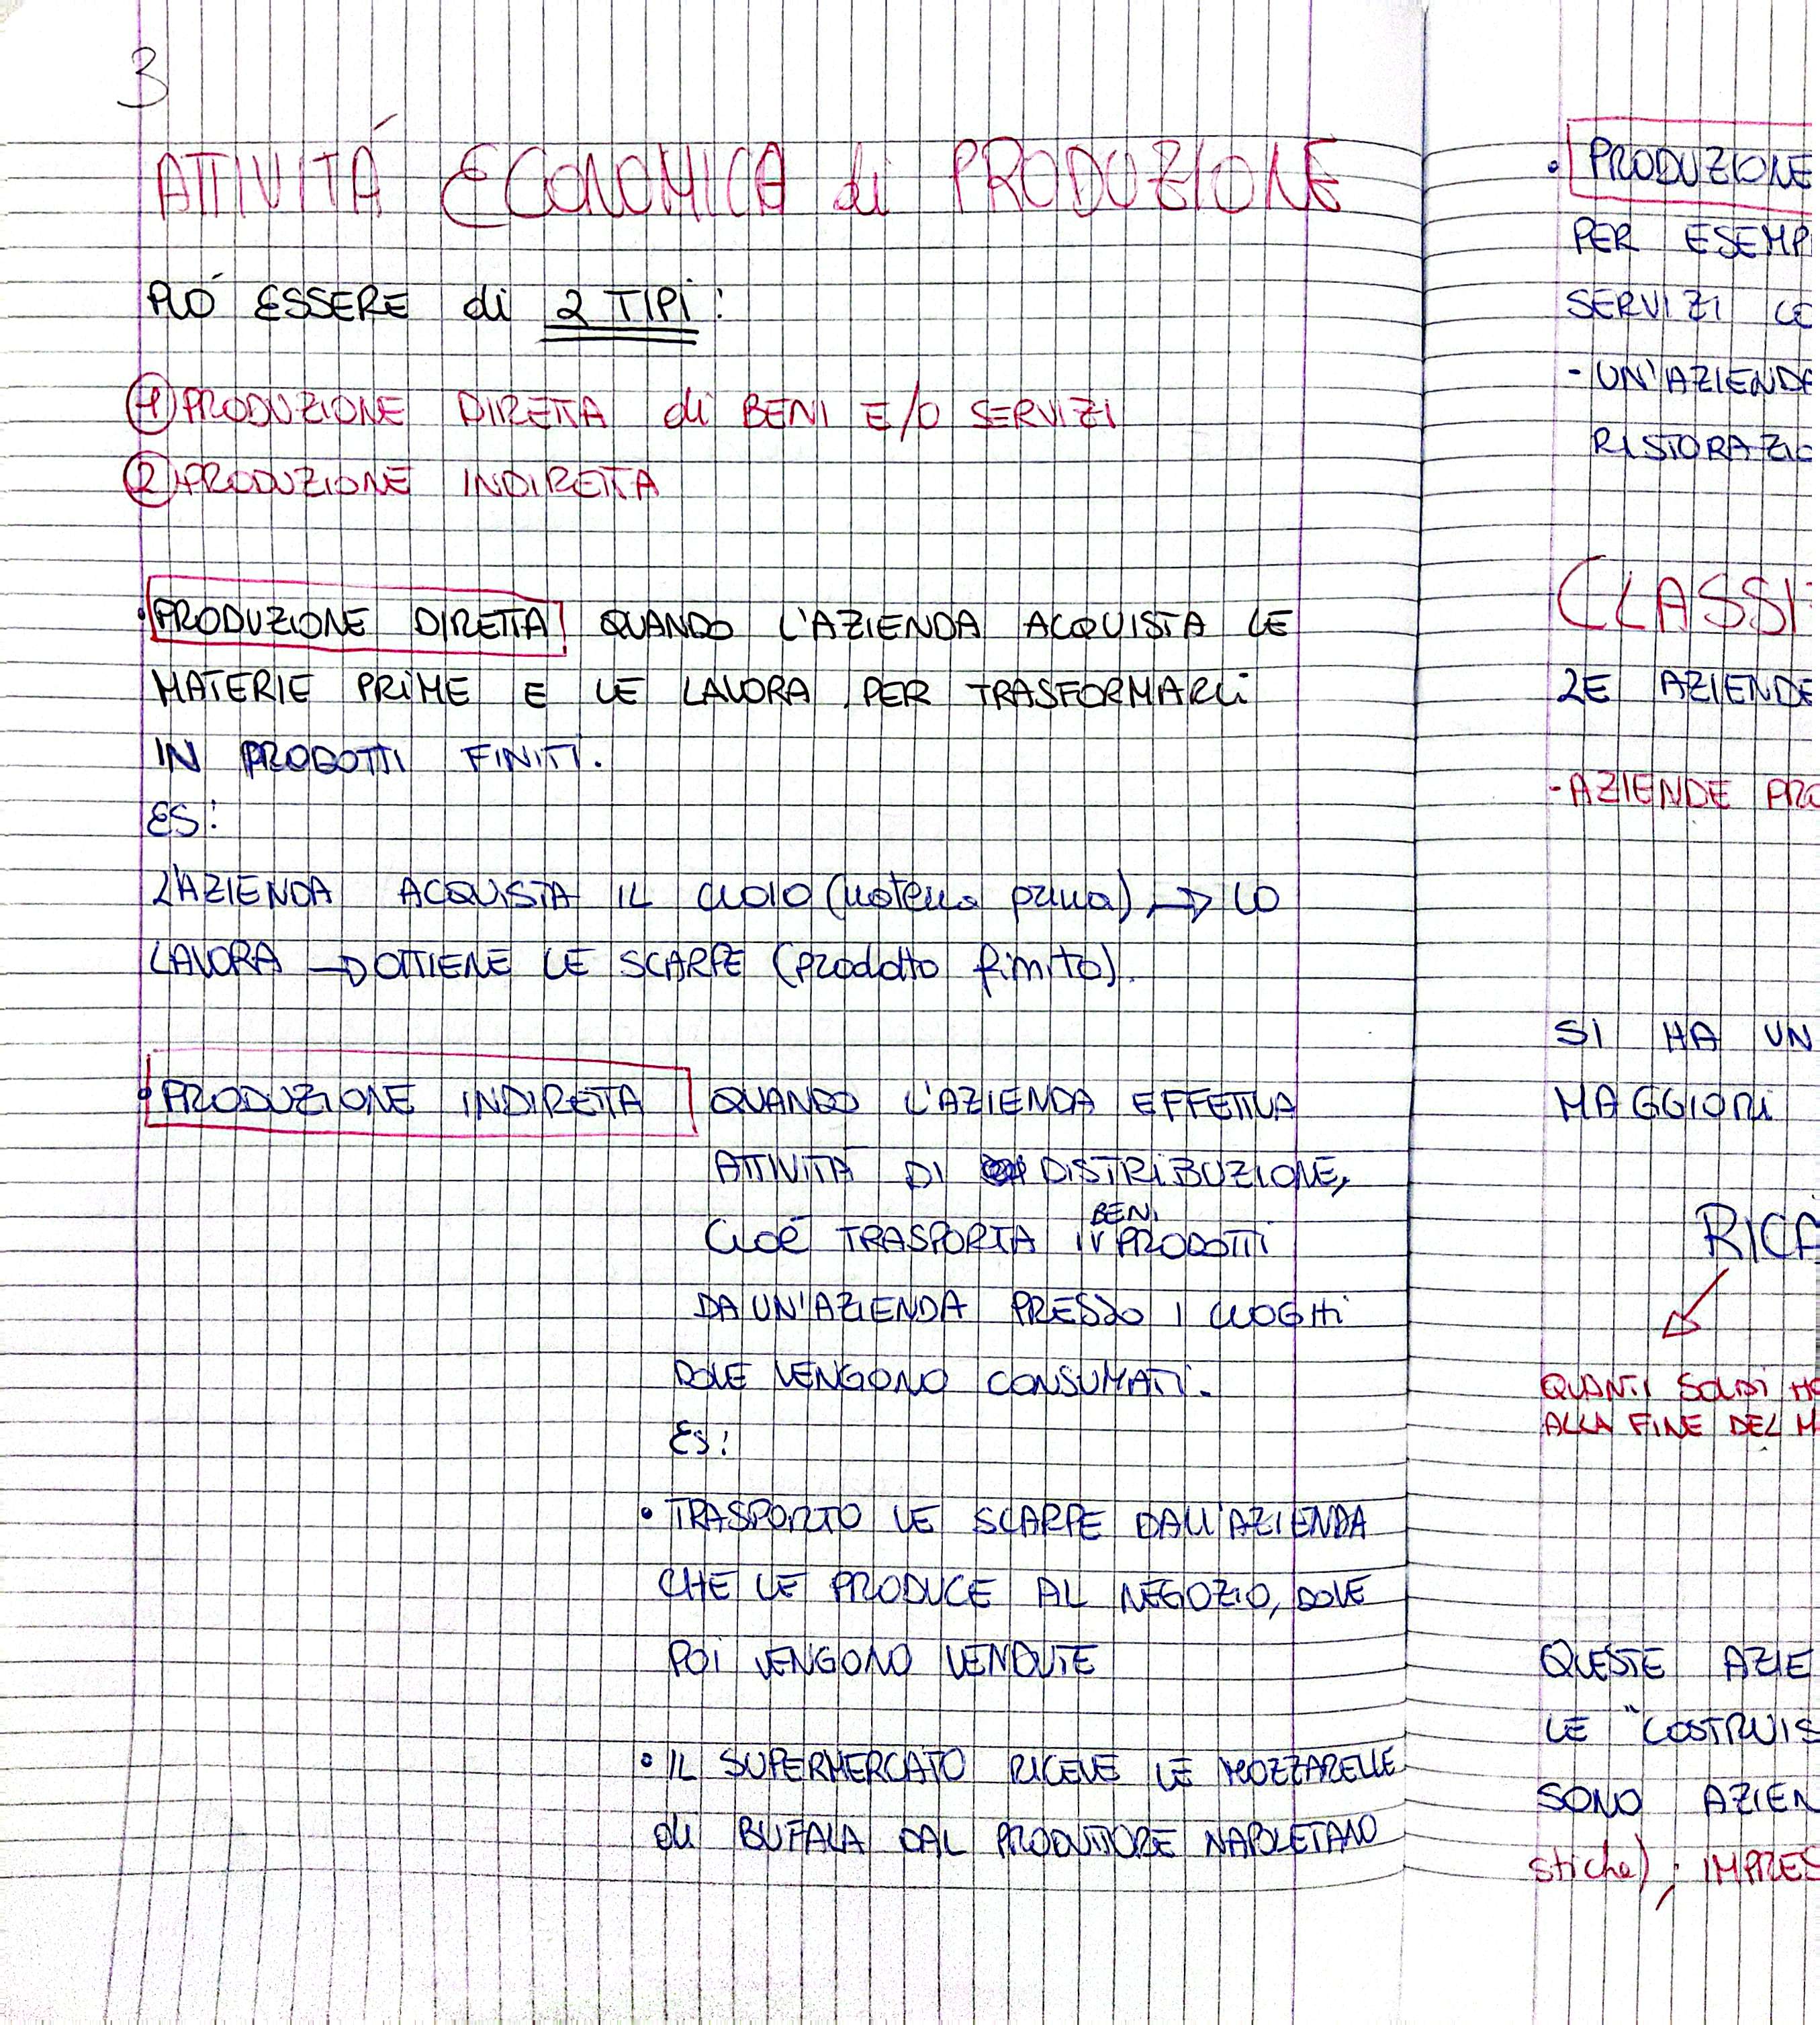 3
ATTIVITÁ ECONOMICA di PRODUZIONE
PUÓ ESSERE di 2 TIPI:
1) PRODUZIONE DIRETTA di BENI E/O SERVIZI
2) PRODUZIONE INDIRETTA
• PRODUZIONE DIRETTA QUANDO L'AZIENDA ACQUISTA LE
MATERIE PRIME E LE LAVORA PER TRASFORMARLI
IN PRODOTTI FINITI.
ES:
L'AZIENDA ACQUISTA IL CUOIO (materia prima) → LO
LAVORA → OTTIENE LE SCARPE (prodotto finito).
• PRODUZIONE INDIRETTA QUANDO L'AZIENDA EFFETTUA
ATTIVITÀ DI DISTRIBUZIONE,
CIOÈ TRASPORTA I BENI PRODOTTI
DA UN'AZIENDA PRESSO I LUOGHI
DOVE VENGONO CONSUMATI.
ES:
• TRASPORTO LE SCARPE DALL'AZIENDA
CHE LE PRODUCE AL NEGOZIO, DOVE
POI VENGONO VENDUTE
• IL SUPERMERCATO RICEVE LE MOZZARELLE
di BUFALA DAL PRODUTTORE NAPOLETANO
• PRODUZIONE
PER ESEMP
SERVIZI CE
- UN'AZIENDE
RISTORAZIO
CLASSI
LE AZIENDE
- AZIENDE PRO
SI HA UN
MAGGIORI
RICA
QUANTI SOLDI HO
ALLA FINE DEL M
QUESTE AZIE
LE "COSTRUIS
SONO AZIEN
stiche); IMPRES